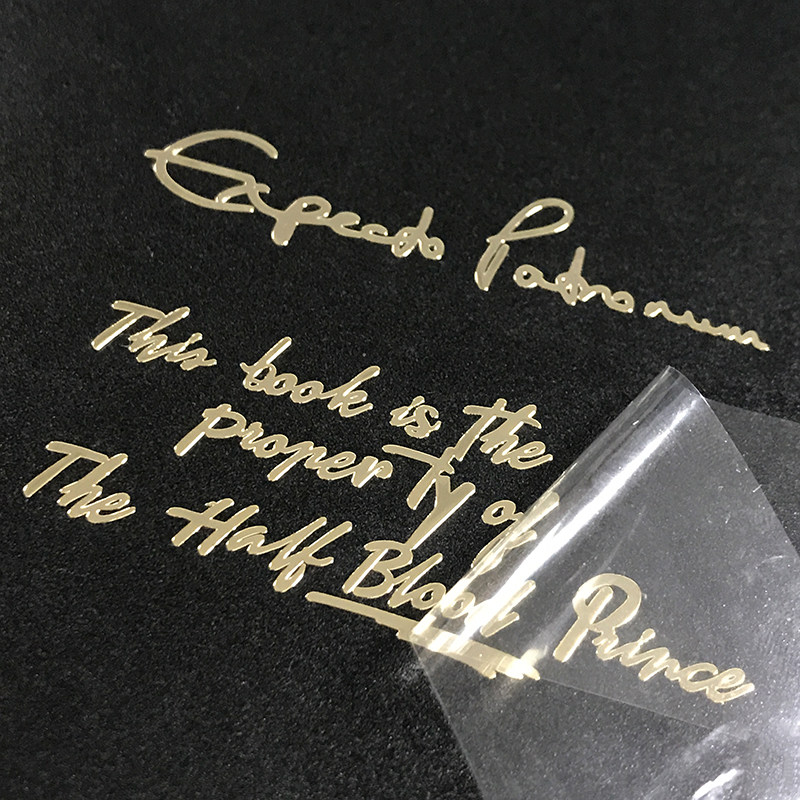 Expecto Patronum
This book is the
property of
The Half Blood Prince